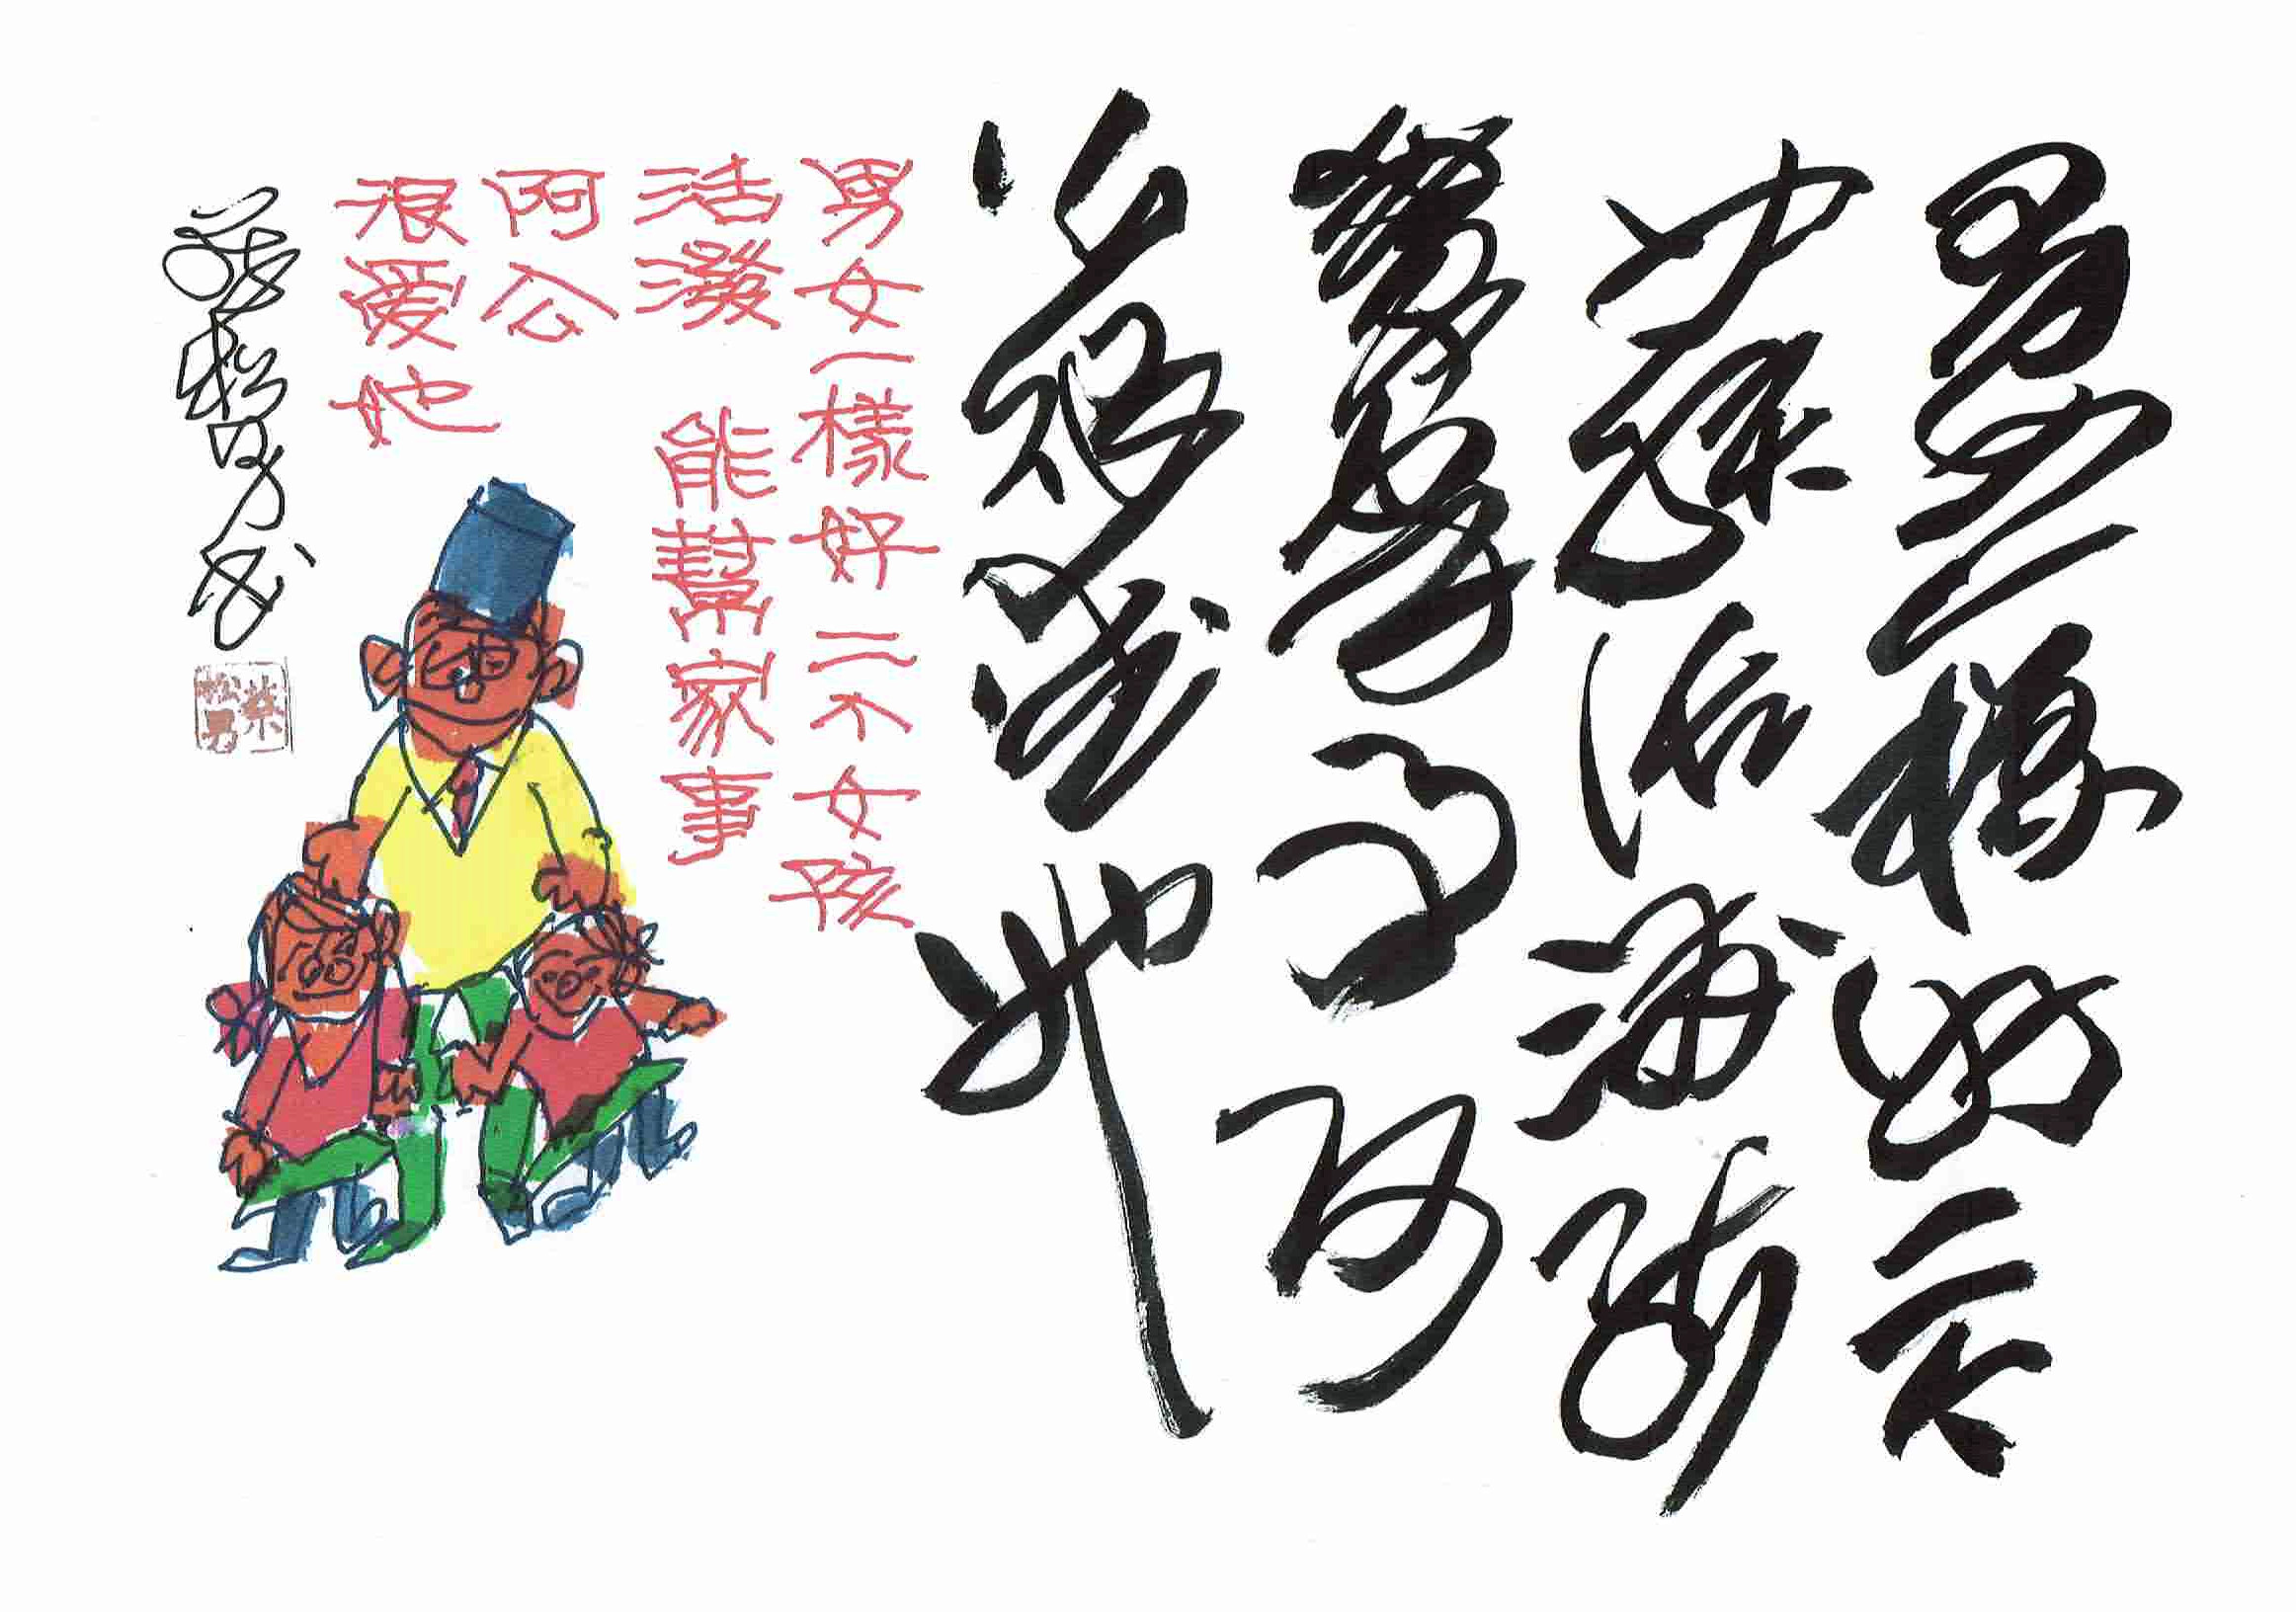 男女一樣好二个
女孫活潑能
幫家事阿
公很愛她
男女一樣好二个女孩
活潑 能幫家事
阿公
很愛她
蔡松男書
蔡松男